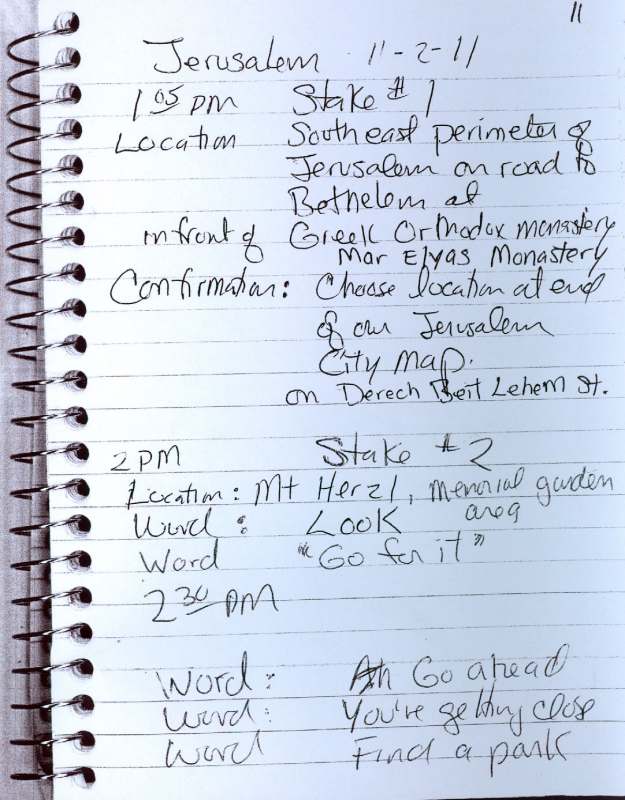 11
Jerusalem 11-2-11
1 05 pm Stake # 1
Location Southeast perimeter of
Jerusalem on road to
Bethelem at
in front of Greek Orthodox monastery
Mar Elyas Monastery
Confirmation: Choose location at end
of our Jerusalem
City Map.
on Derech Beit Lehem St.
2 PM Stake # 2
Location: Mt Herzl, memorial garden
area
Word : Look
Word "Go for it"
2 30 PM
Word : Go ahead
Word: You're getting close
Word Find a park